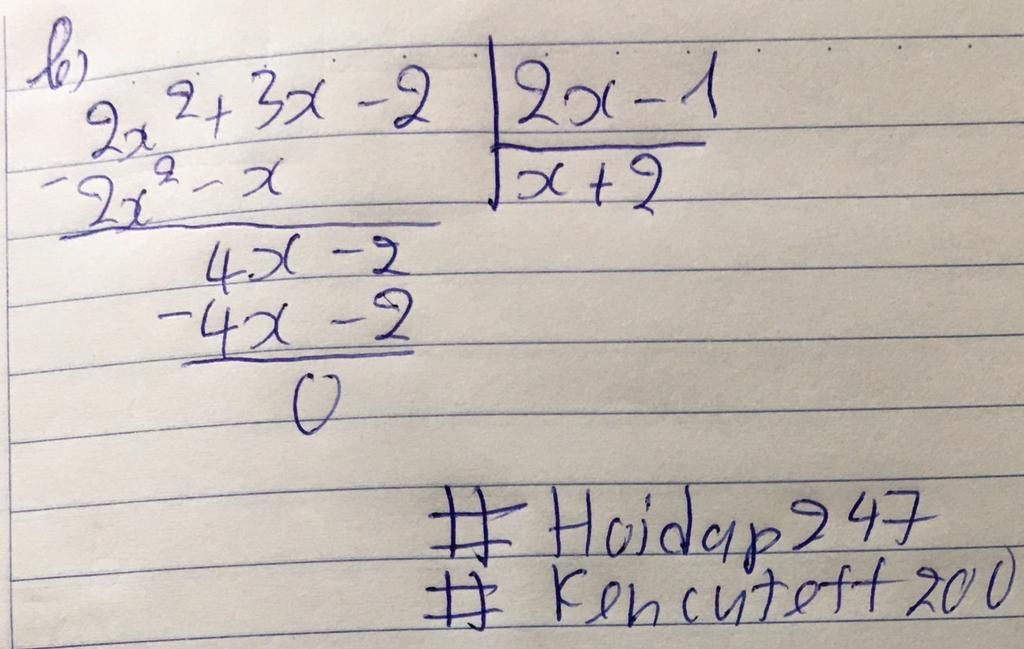 b)
2x² + 3x - 2 | 2x - 1
- 2x² - x | x + 2
4x - 2
- 4x - 2
0
# Hoidap247
# Kencuteff200